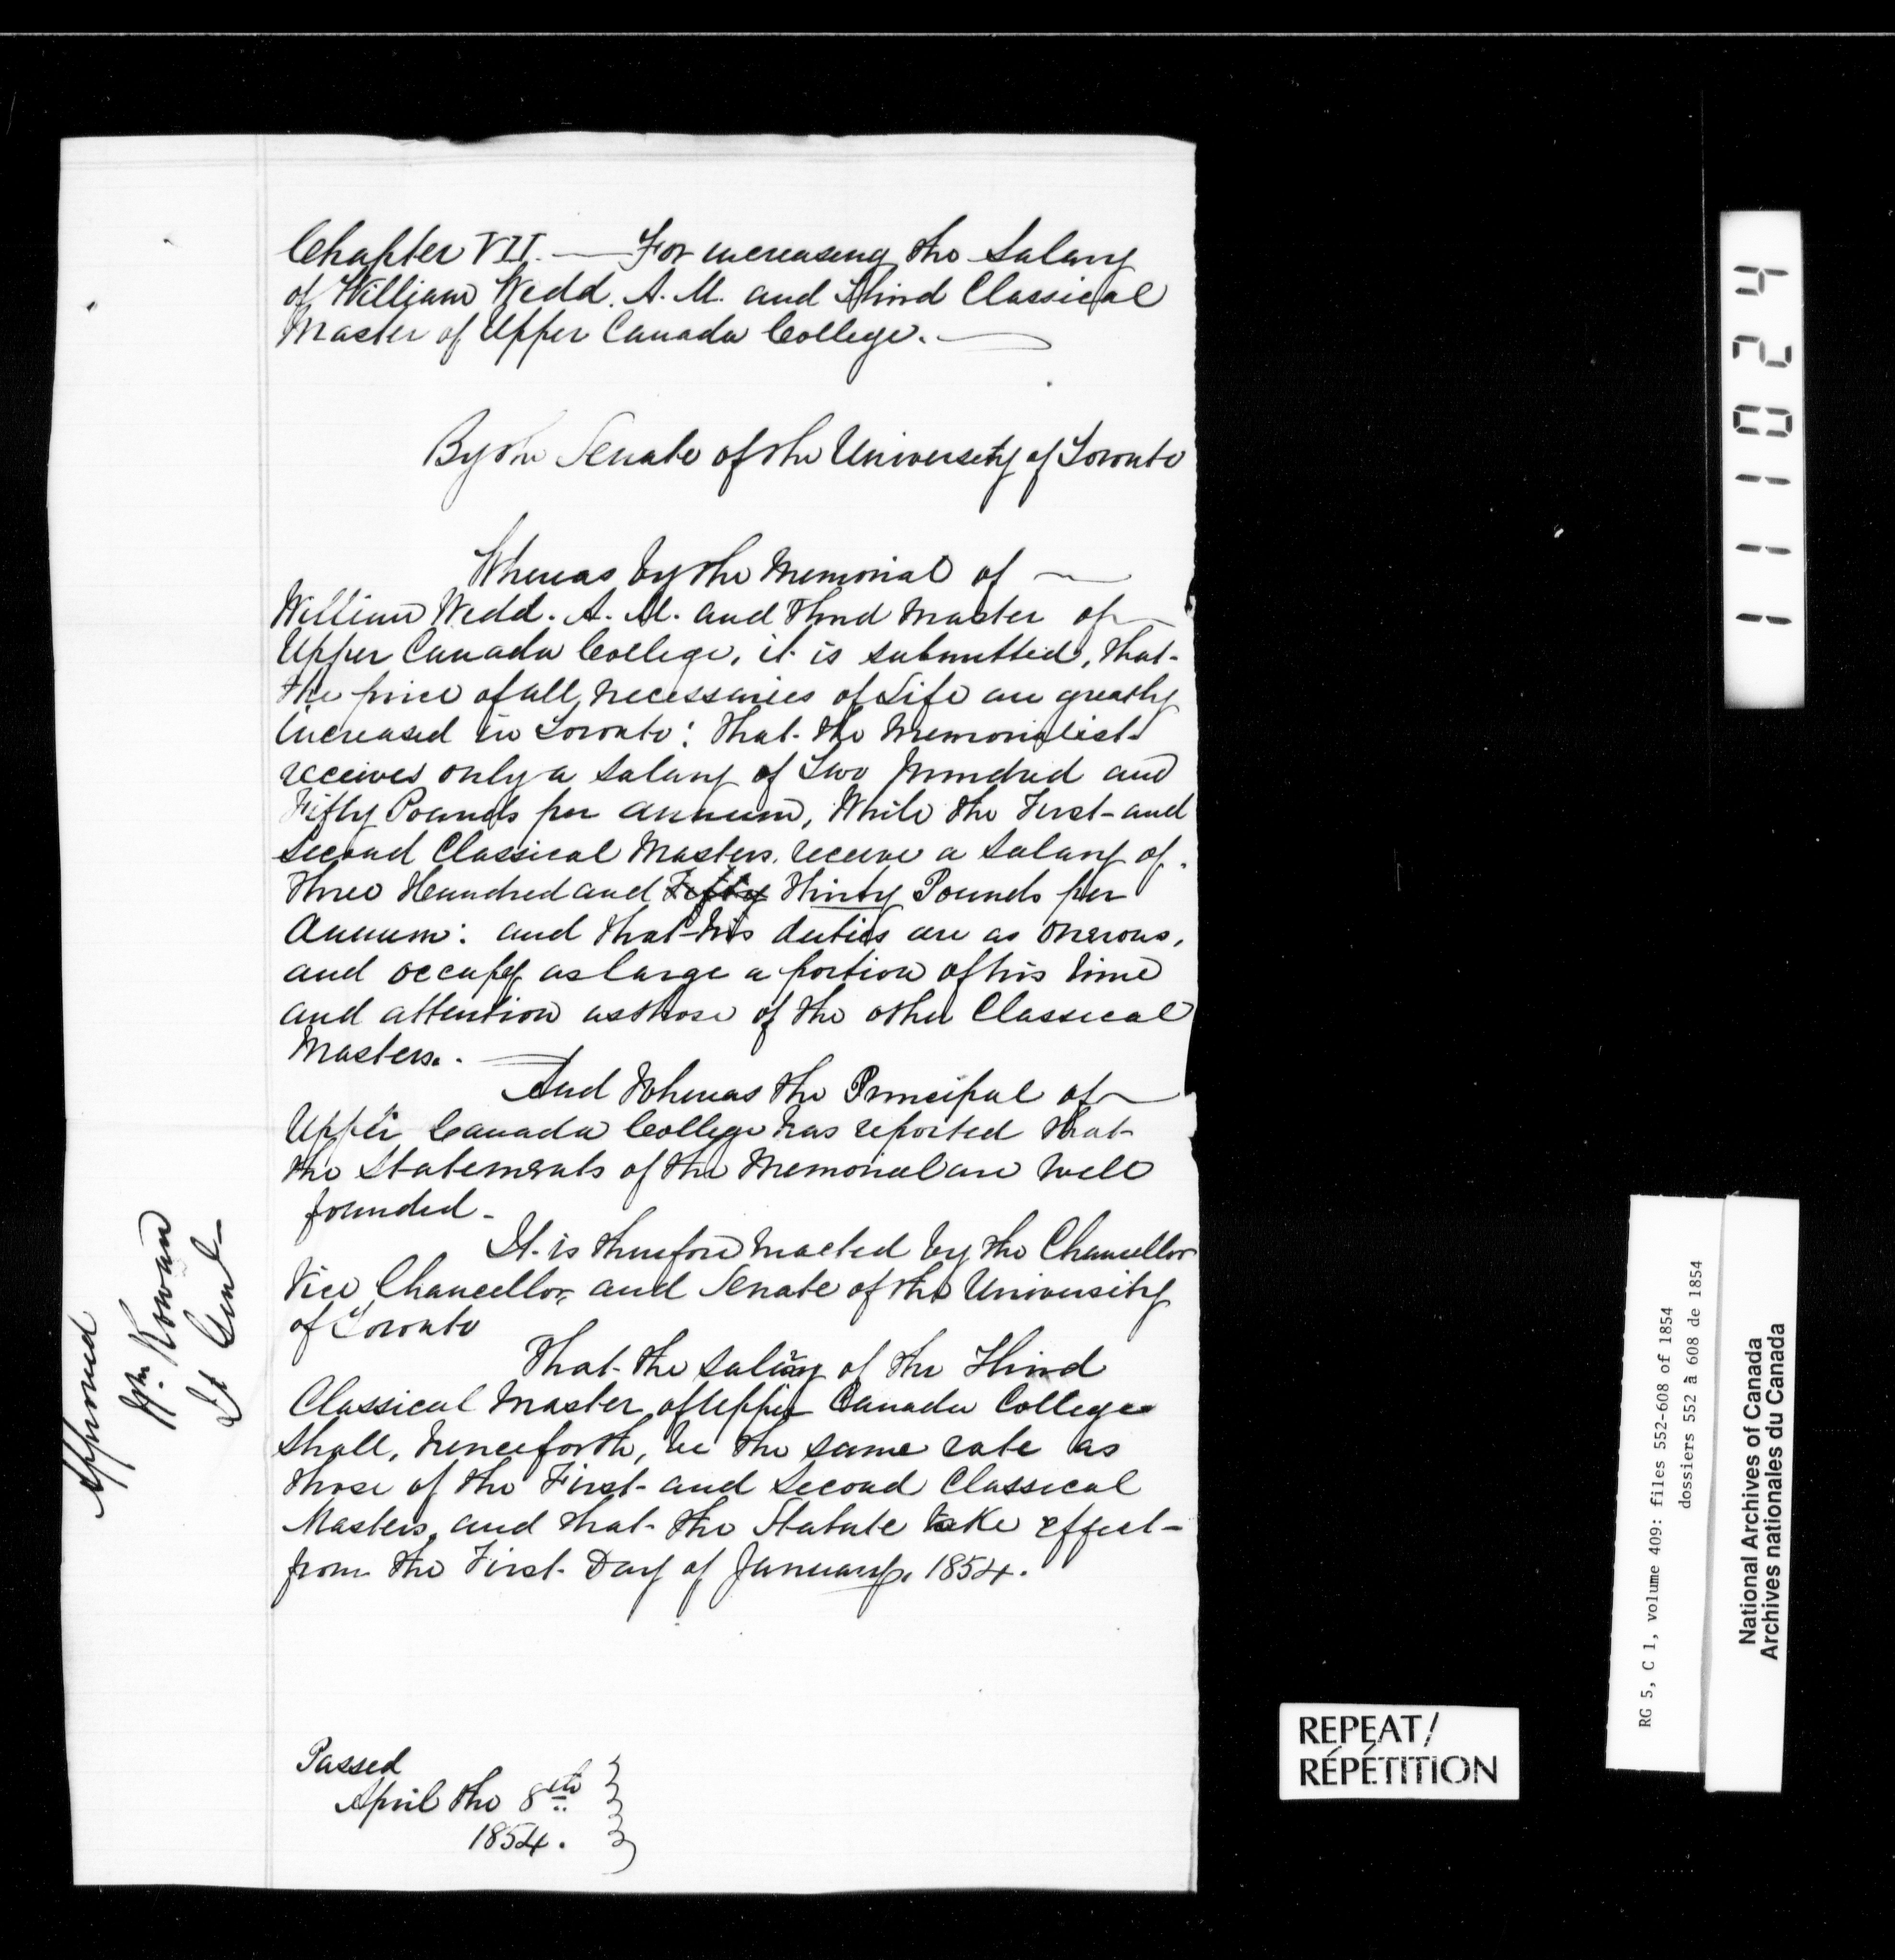 Chapter VII. — For increasing the Salary
of William Wedd. A. M. and Third Classical
Master of Upper Canada College. —
By the Senate of the University of Toronto
Whereas by the Memorial of —
William Wedd. A. M. and Third Master of
Upper Canada College, it is submitted, that
the price of all necessaries of Life are greatly
increased in Toronto: that the Memorialist
receives only a Salary of Two Hundred and
Fifty Pounds per annum, While the First and
Second Classical Masters receive a Salary of
Three Hundred and Fifty Thirty Pounds per
Annum: and that his duties are as onerous,
and occupy as large a portion of his time
and attention as those of the other Classical
Masters. —
And Whereas the Principal of
Upper Canada College has reported that
the Statements of the Memorial are well
founded -
It is therefore enacted by the Chancellor
Vice Chancellor, and Senate of the University
of Toronto
That the salary of the Third
Classical Master of Upper Canada College
Shall, henceforth, be the same rate as
those of the First and Second Classical
Masters, and that the Statute take effect
from the First Day of January, 1854.
Passed
April the 8th
1854.
Approved
Wm Rowan
Lt Genl
11024
111024
REPEAT/
RÉPÉTITION
RG 5, C 1, volume 409: files 552-608 of 1854
dossiers 552 à 608 de 1854
National Archives of Canada
Archives nationales du Canada